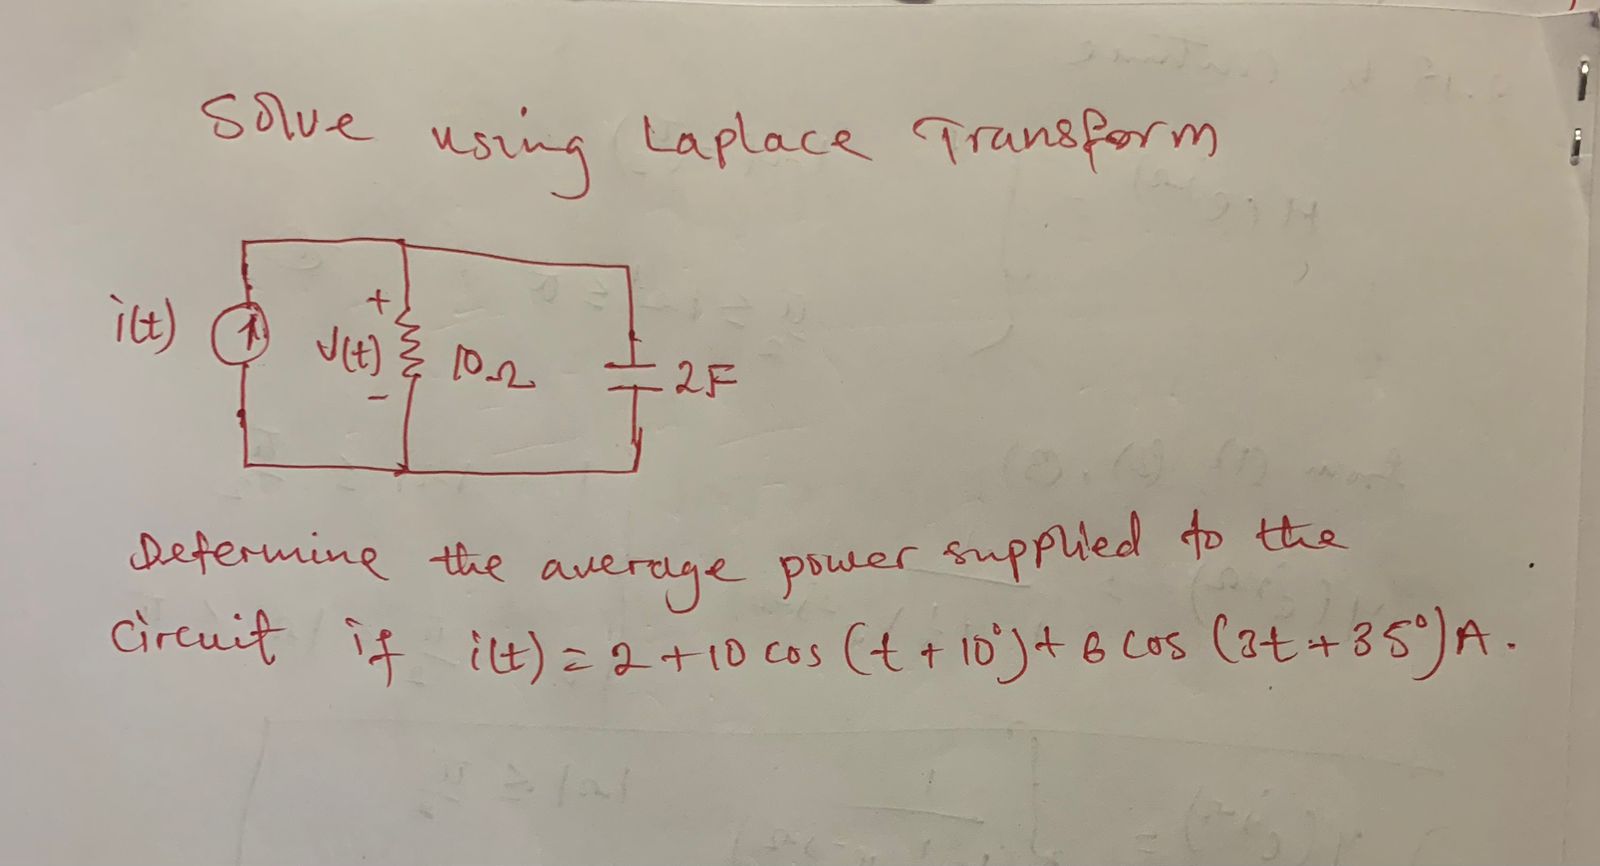 Solve using Laplace Transform
i(t)
+
V(t)
-
10Ω
2F
Determine the average power supplied to the
circuit if i(t) = 2 + 10 cos (t + 10°) + 6 cos (3t + 35°) A.